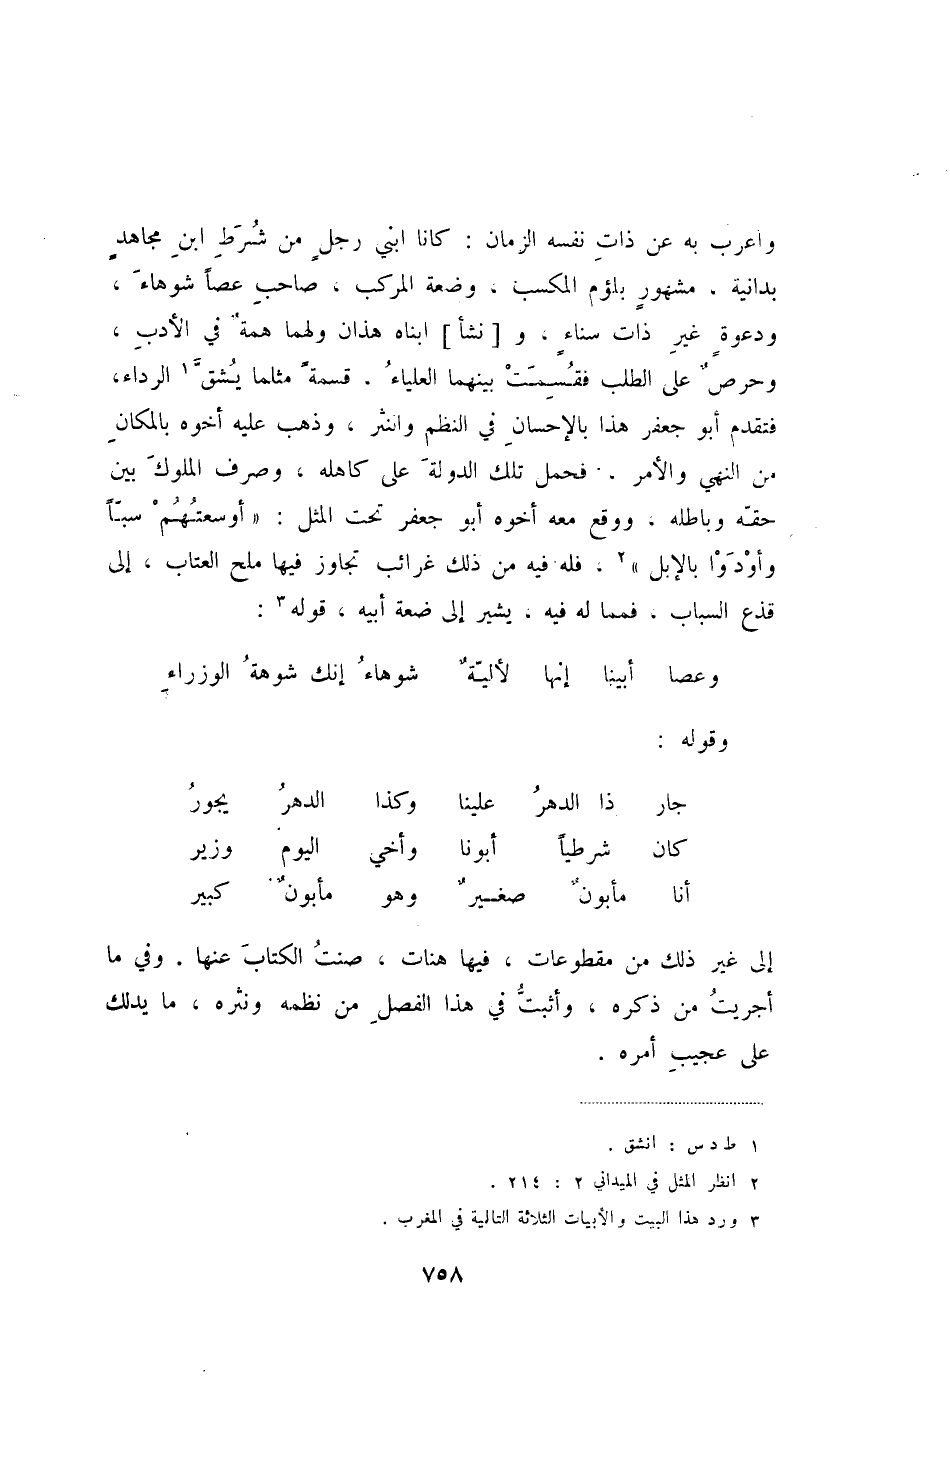 وأعرب به عن ذاتِ نفسه الزمان : كانا ابني رجلٍ من شُرَطِ ابنِ مجاهدٍ
بدانية ، مشهورٍ بلؤم المكسب ، وضعة المركب ، صاحبِ عصاً شوهاءَ ،
ودعوةٍ غيرِ ذات سناءٍ ، و [ نشأ ] ابناه هذان ولهما همةٌ في الأدبِ ،
وحرصٌ على الطلب فقُسِمَتْ بينهما العلياءُ ، قسمةً مثلما يُشقّ١ الرداء،
فتقدم أبو جعفر هذا بالإحسانِ في النظم والنثر ، وذهب عليه أخوه بالمكانِ
من النهي والأمر . فحمل تلك الدولةَ على كاهله ، وصرف الملوكَ بين
حقّه وباطله ، ووقع معه أخوه أبو جعفر تحت المثل : « أوسعتُهُمْ سبّاً
وأوْدَوْا بالإبل »٢ ، فله فيه من ذلك غرائب تجاوز فيها ملح العتاب ، إلى
قذع السباب ، فمما له فيه ، يشير إلى ضعة أبيه ، قوله٣ :
وعصا أبينا إنها لأليّةٌ شوهاءُ إنك شوهةُ الوزراءِ
وقوله :
جار ذا الدهرُ علينا وكذا الدهرُ يجورُ
كان شرطياً أبونا وأخي اليومَ وزير
أنا مأبونٌ صغيرٌ وهو مأبونٌ كبير
إلى غير ذلك من مقطوعات ، فيها هنات ، صنتُ الكتابَ عنها . وفي ما
أجريتُ من ذكره ، وأثبتُّ في هذا الفصلِ من نظمه ونثره ، ما يدلك
على عجيبِ أمره .
١ ط د س : انشق .
٢ انظر المثل في الميداني ٢ : ٢١٤ .
٣ ورد هذا البيت والأبيات الثلاثة التالية في المغرب .
٧٥٨